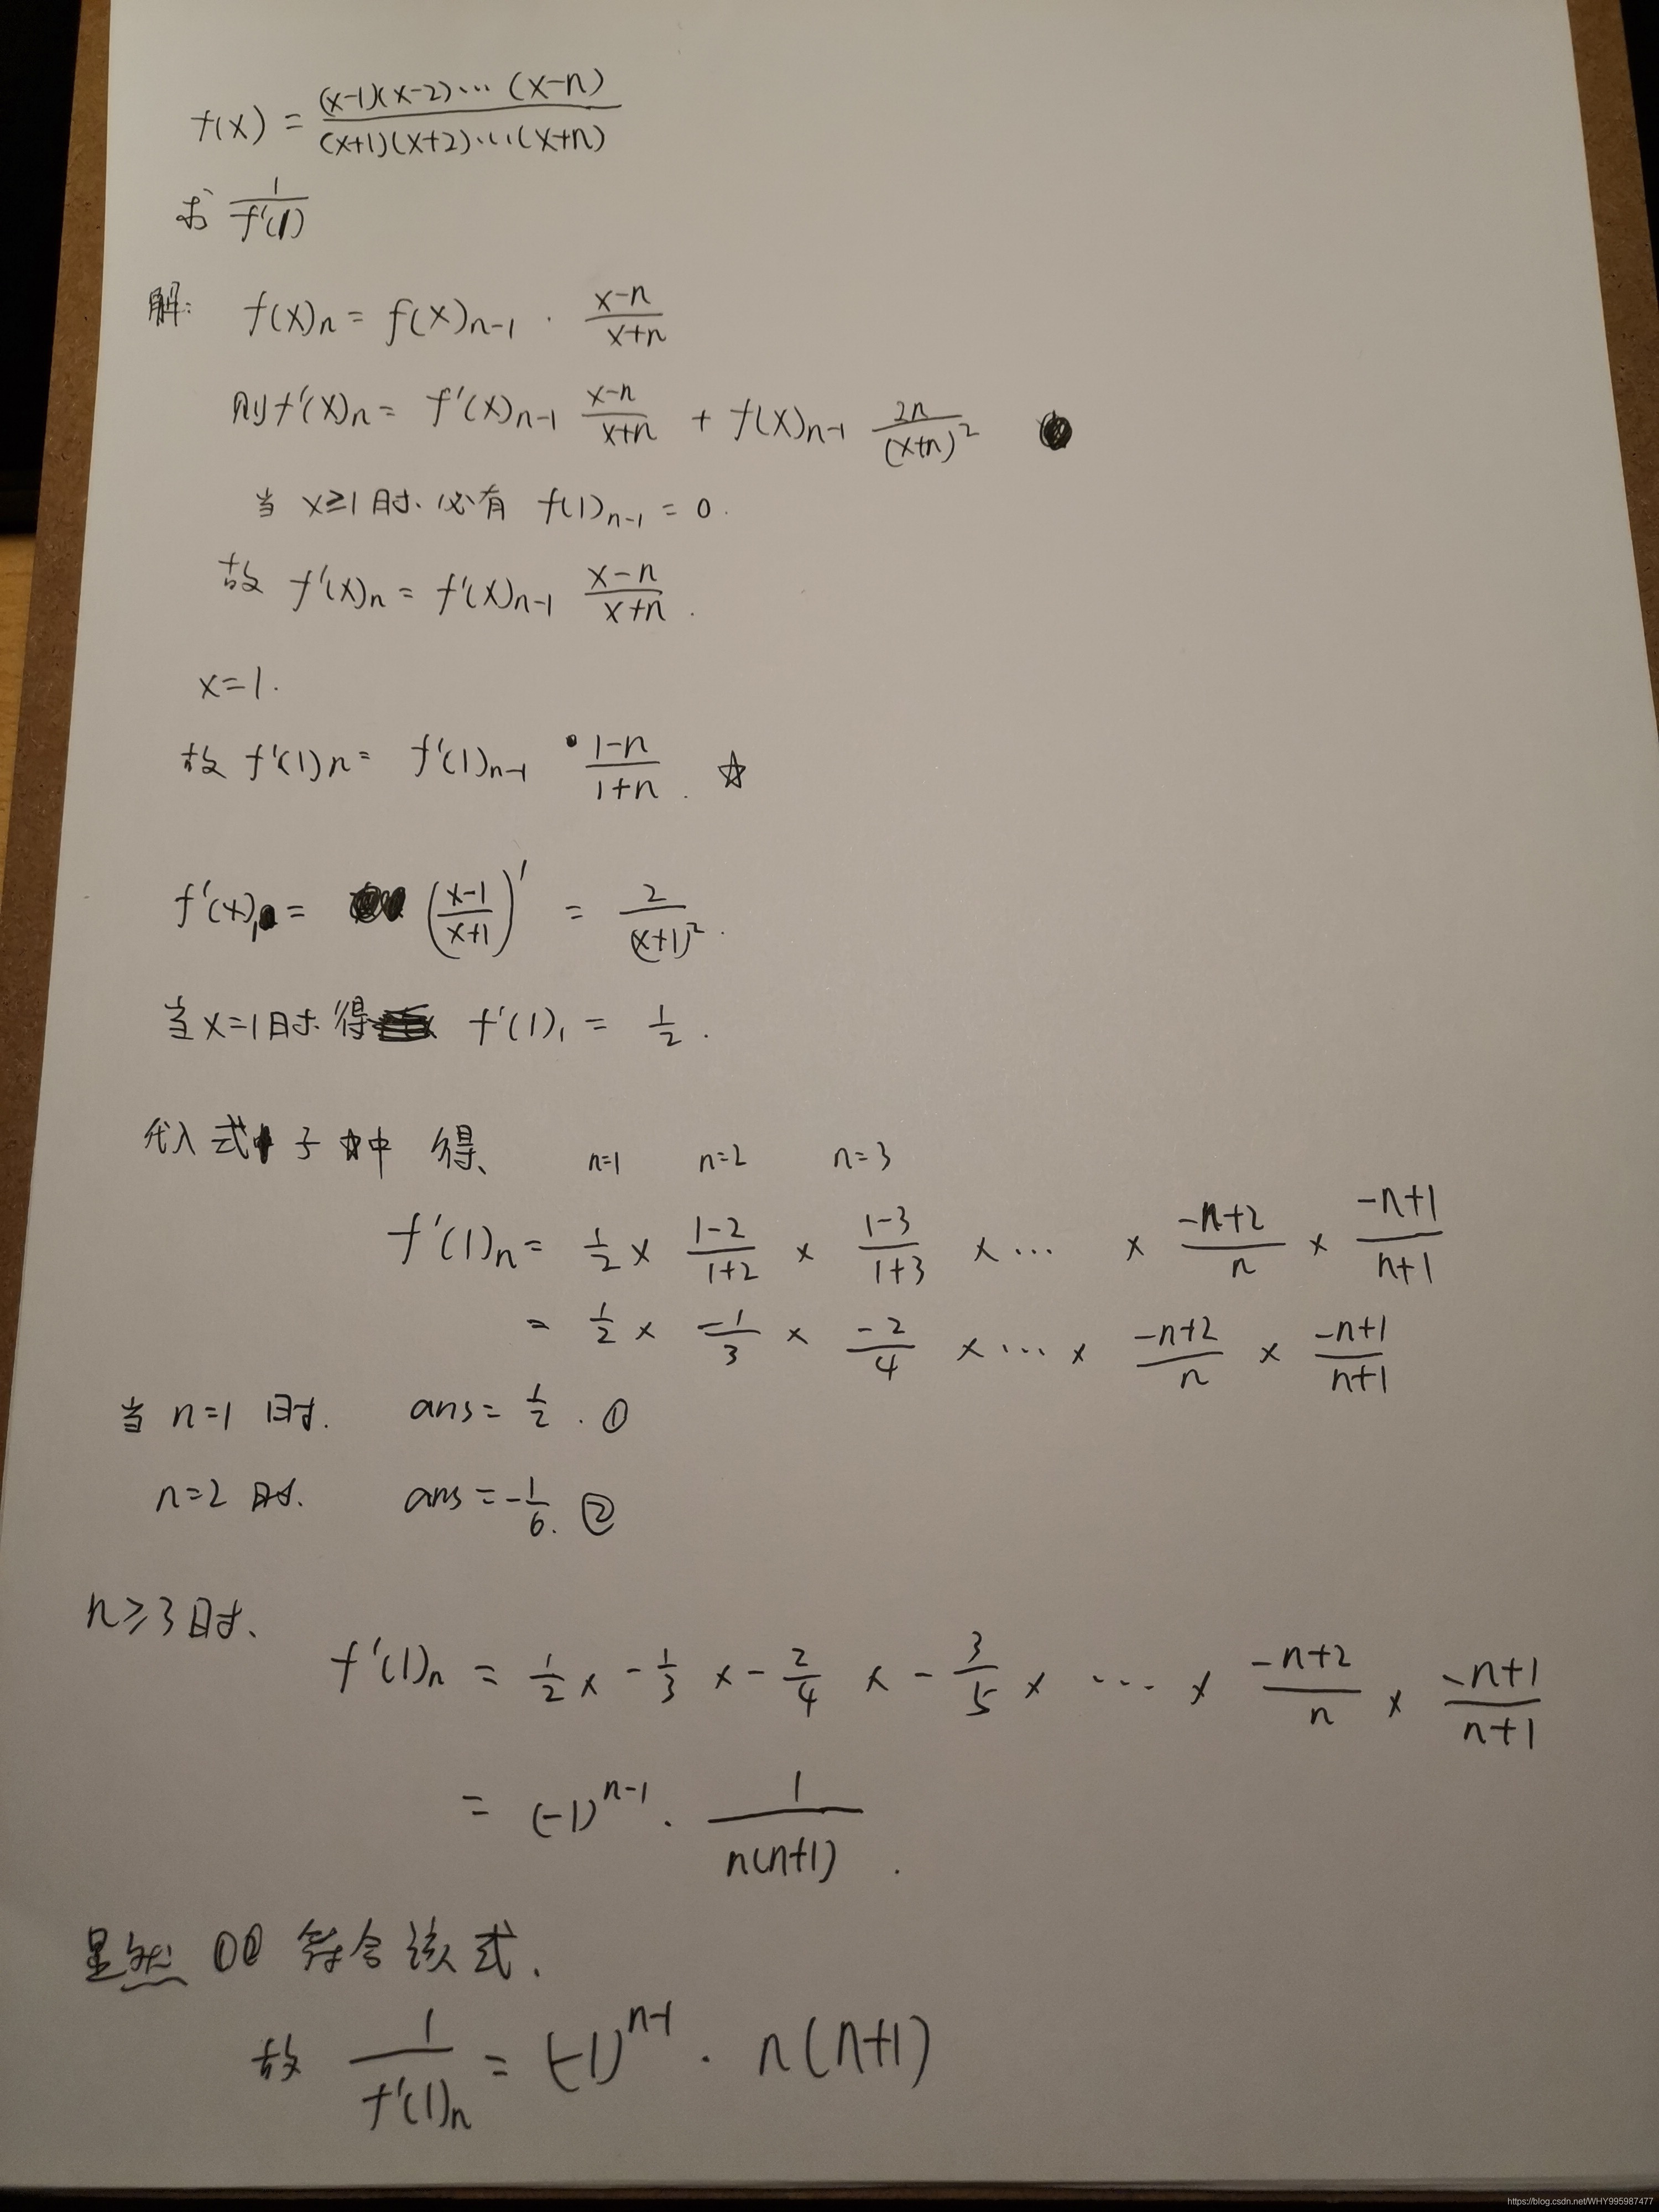 f(x) = (x-1)(x-2)⋯(x-n) / (x+1)(x+2)⋯(x+n)
求 1/f'(1)
解: f(x)n = f(x)n-1 · (x-n)/(x+n)
则 f'(x)n = f'(x)n-1 (x-n)/(x+n) + f(x)n-1 2n/(x+n)²
当 x≥1 时、必有 f(1)n-1 = 0.
故 f'(x)n = f'(x)n-1 (x-n)/(x+n).
x=1.
故 f'(1)n = f'(1)n-1 · (1-n)/(1+n). ☆
f'(x)1 = ((x-1)/(x+1))' = 2/(x+1)².
当 x=1 时、得 f'(1)1 = 1/2.
代入式子☆中 得、 n=1 n=2 n=3
f'(1)n = 1/2 × (1-2)/(1+2) × (1-3)/(1+3) × ⋯ × (-n+2)/n × (-n+1)/(n+1)
= 1/2 × -1/3 × -2/4 × ⋯ × (-n+2)/n × (-n+1)/(n+1)
当 n=1 时. ans = 1/2. ①
n=2 时. ans = -1/6. ②
n≥3 时、
f'(1)n = 1/2 × -1/3 × -2/4 × -3/5 × ⋯ × (-n+2)/n × (-n+1)/(n+1)
= (-1)^(n-1) · 1/(n(n+1)).
显然 ①② 符合该式.
故 1/f'(1)n = (-1)^(n-1) · n(n+1)
https://blog.csdn.net/WHY995987477